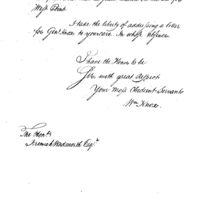 I take the liberty of addressing a letter
for Genl Knox to your care. In whose
I have the Honor to be
Sir, with great Respect
Your Most Obedient Servant
Wm Knox
The Honble
Jeremiah Wadsworth Esqr